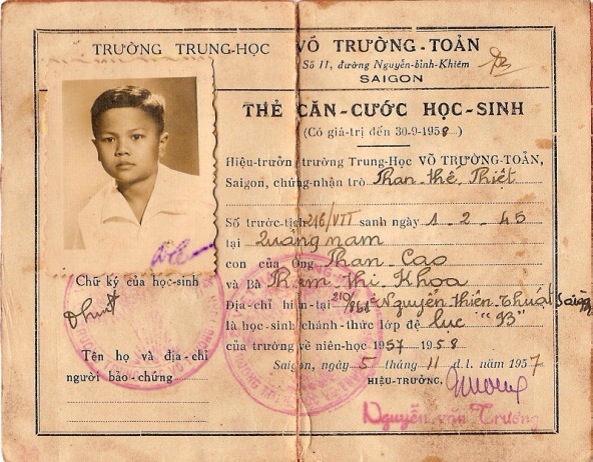 TRƯỜNG TRUNG-HỌC VÕ TRƯỜNG-TOẢN
Số 11, đường Nguyễn-bỉnh-Khiêm
SAIGON
THẺ CĂN-CƯỚC HỌC-SINH
(Có giá-trị đến 30-9-1958)
Hiệu-trưởng trường Trung-Học VÕ TRƯỜNG-TOẢN,
Saigon, chứng-nhận trò Phan thế Thiệt
Số trước-tịch 216/VTT sanh ngày 1-2-45
tại Quảng nam
con của Ông Phan Cao
và Bà Phạm thị Khoa
Địa-chỉ hiện-tại 210/ Nguyễn thiện Thuật Saigon
là học-sinh chánh-thức lớp đệ lục "B3"
của trường về niên-học 1957 1958
Saigon, ngày 5 tháng 11 d.l. năm 1957
HIỆU-TRƯỞNG,
Nguyễn văn Trương
Chữ ký của học-sinh
Tên họ và địa-chỉ
người bảo-chứng